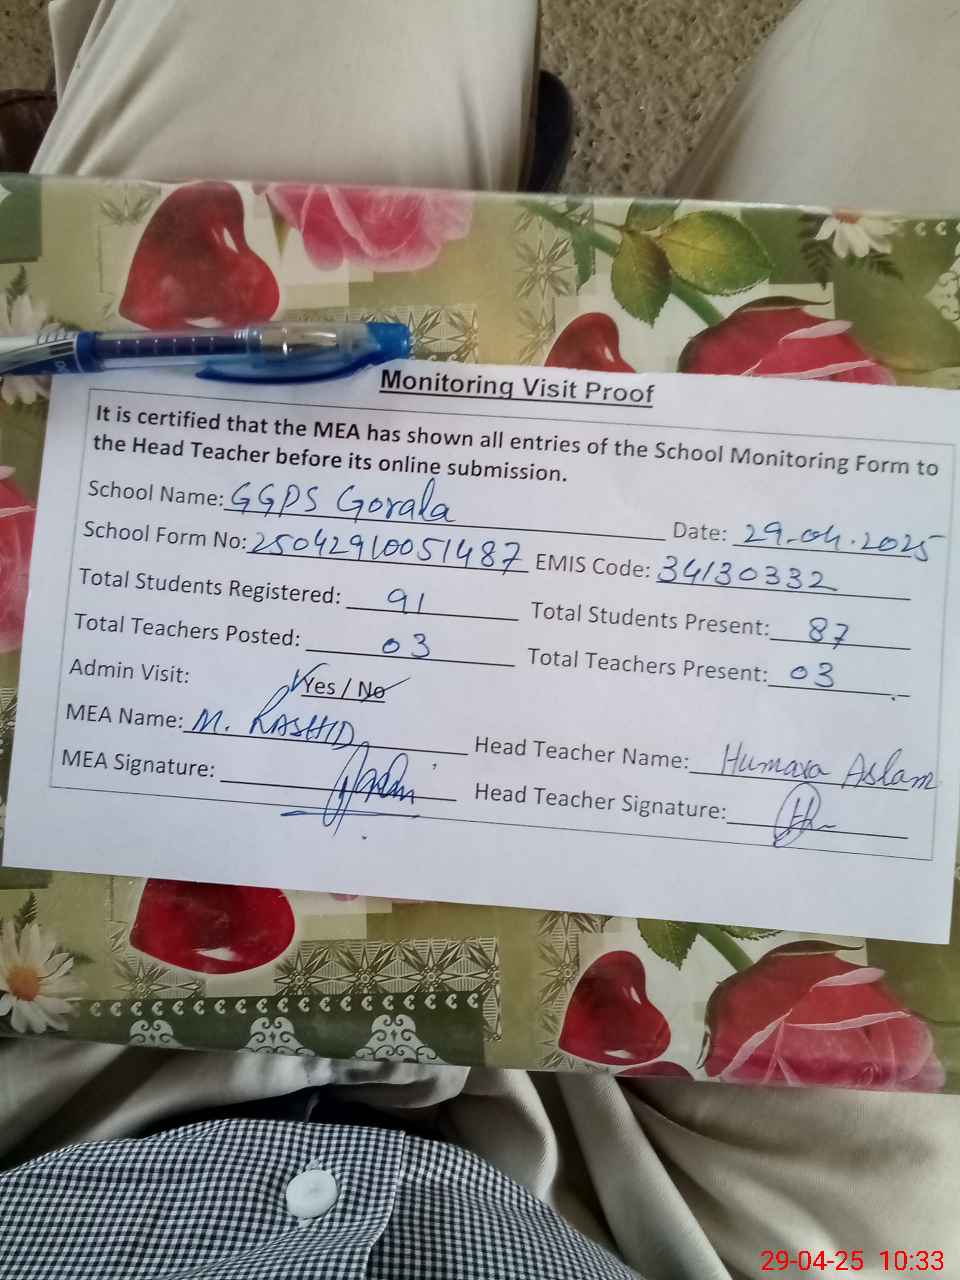 Monitoring Visit Proof
It is certified that the MEA has shown all entries of the School Monitoring Form to
the Head Teacher before its online submission.
School Name: GGPS Gorala Date: 29-04-2025
School Form No: 25042910051487 EMIS Code: 34130332
Total Students Registered: 91 Total Students Present: 87
Total Teachers Posted: 03 Total Teachers Present: 03
Admin Visit: Yes / No
MEA Name: M. RASHID Head Teacher Name: Humara Aslam
MEA Signature: Head Teacher Signature:
29-04-25 10:33